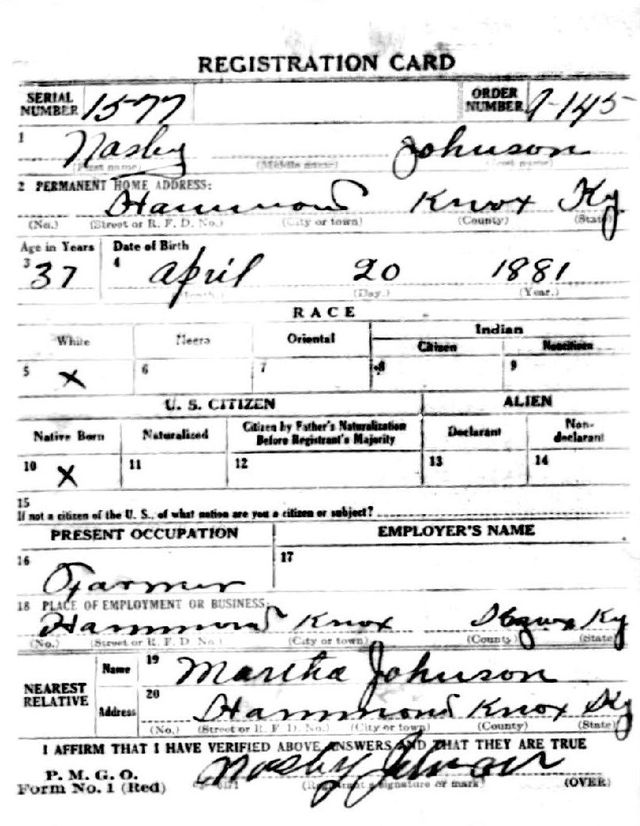 REGISTRATION CARD
SERIAL NUMBER 1577 ORDER NUMBER A-145
1 Nasby Johnson
(First name) (Middle name) (Last name)
2 PERMANENT HOME ADDRESS:
Hammond Knox Ky
(No.) (Street or R. F. D. No.) (City or town) (County) (State)
Age in Years Date of Birth
3 37 4 April 20 1881
(Month.) (Day.) (Year.)
RACE
White Negro Oriental Indian
Citizen Noncitizen
5 X 6 7 8 9
U. S. CITIZEN ALIEN
Native Born Naturalized Citizen by Father's Naturalization Before Registrant's Majority Declarant Non-declarant
10 X 11 12 13 14
15
If not a citizen of the U. S., of what nation are you a citizen or subject?
PRESENT OCCUPATION EMPLOYER'S NAME
16 Farmer 17
18 PLACE OF EMPLOYMENT OR BUSINESS
Hammond Knox Ky
(No.) (Street or R. F. D. No.) (City or town) (County) (State)
NEAREST RELATIVE Name 19 Martha Johnson
Address 20 Hammond Knox Ky
(No.) (Street or R. F. D. No.) (City or town) (County) (State)
I AFFIRM THAT I HAVE VERIFIED ABOVE ANSWERS AND THAT THEY ARE TRUE
P. M. G. O.
Form No. 1 (Red) Nosby (Registrant's signature or mark) (OVER)